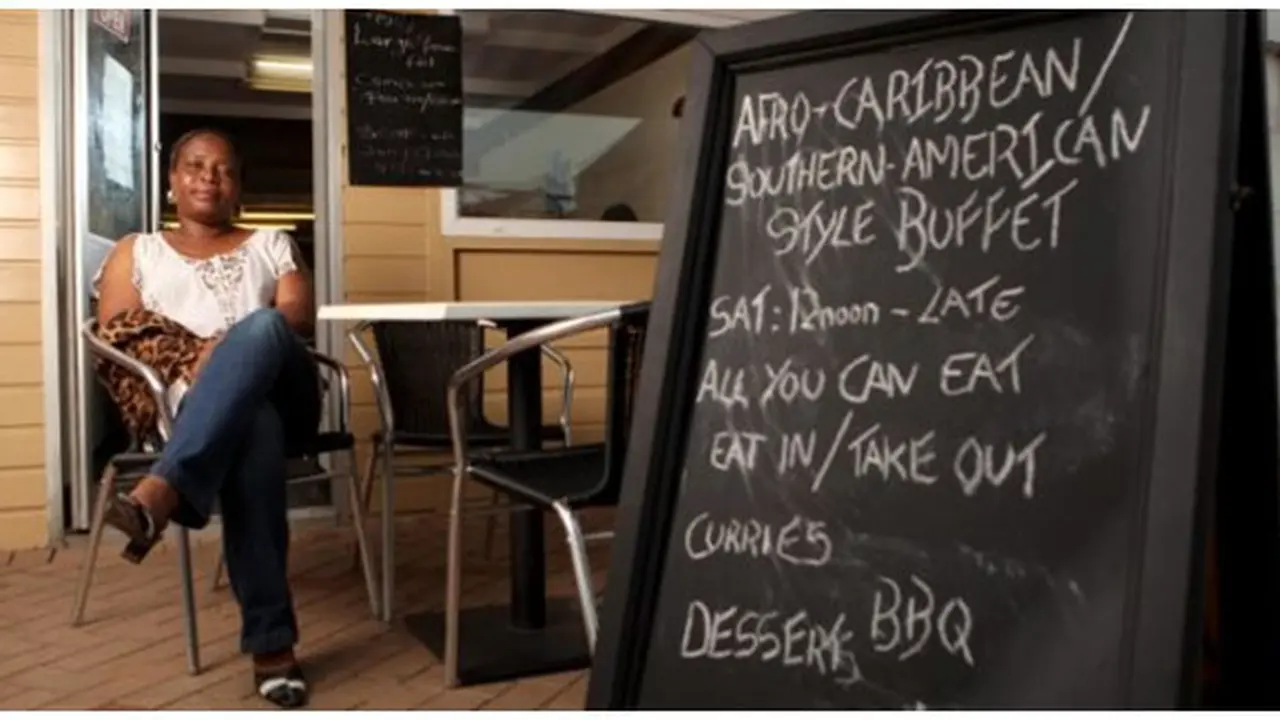 OPEN
AFRO-CARIBBEAN/
SOUTHERN-AMERICAN
STYLE BUFFET
SAT: 12noon - LATE
ALL YOU CAN EAT
EAT IN/TAKE OUT
CURRIES
DESSERTS BBQ